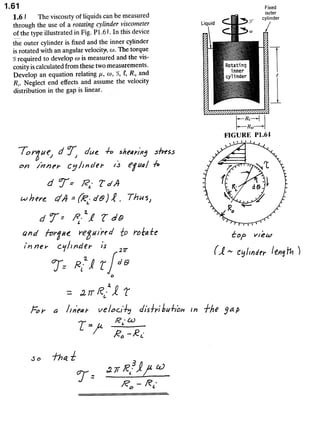 1.61
1.61 The viscosity of liquids can be measured
through the use of a rotating cylinder viscometer
of the type illustrated in Fig. P1.61. In this device
the outer cylinder is fixed and the inner cylinder
is rotated with an angular velocity, ω. The torque
𝒯 required to develop ω is measured and the vis-
cosity is calculated from these two measurements.
Develop an equation relating μ, ω, 𝒯, ℓ, Rₒ and
Rᵢ. Neglect end effects and assume the velocity
distribution in the gap is linear.
Liquid
Fixed
outer
cylinder
𝒯
ω
Rotating
inner
cylinder
ℓ
Rᵢ
Rₒ
FIGURE P1.61
Torque, d𝒯, due to shearing stress
on inner cylinder is equal to
d𝒯 = Rᵢ τ dA
where dA = (Rᵢ dθ)ℓ. Thus,
d𝒯 = Rᵢ² ℓ τ dθ
and torque required to rotate
inner cylinder is
𝒯 = Rᵢ² ℓ τ ∫₀^2π dθ
= 2π Rᵢ² ℓ τ
τ
dθ
Rᵢ
Rₒ
top view
(ℓ ~ cylinder length)
For a linear velocity distribution in the gap
τ = μ Rᵢω / (Rₒ - Rᵢ)
so that
𝒯 = 2π Rᵢ³ ℓ μ ω / (Rₒ - Rᵢ)